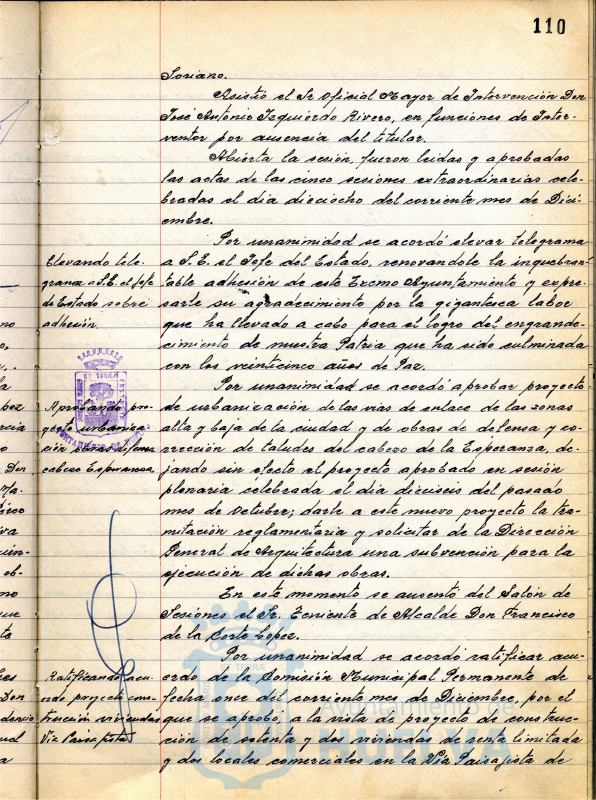 110
Soriano.
Asistió el Sr Oficial Mayor de Intervención Don
José Antonio Izquierdo Rivero, en funciones de Inter-
ventor por ausencia del titular.
Abierta la sesión, fueron leidas y aprobadas
las actas de las cinco sesiones extraordinarias cele-
bradas el día dieciocho del corriente mes de Dici-
embre.
Elevando tele-
grama a S.E. el Jefe
de Estado sobre
adhesión.
Por unanimidad se acordó elevar telegrama
a S.E. el Jefe del Estado, renovandole la inquebran-
table adhesión de este Excmo Ayuntamiento y expre-
sarle su agradecimiento por la gigantesca labor
que ha llevado a cabo para el logro del engrande-
cimiento de nuestra Patria que ha sido culminada
con los veinticinco años de Paz.
Aprobando pro-
yecto urbaniza-
ción obras defensa
cabezo Esperanza
Por unanimidad se acordó aprobar proyecto
de urbanización de las vias de enlace de las zonas
alta y baja de la ciudad y de obras de defensa y co-
rrección de taludes del cabezo de la Esperanza, de-
jando sin efecto el proyecto aprobado en sesión
plenaria celebrada el día dieciseis del pasado
mes de Octubre; darle a este nuevo proyecto la tra-
mitación reglamentaria y solicitar de la Dirección
General de Arquitectura una subvención para la
ejecución de dichas obras.
En este momento se ausentó del Salón de
Sesiones el Sr. Teniente de Alcalde Don Francisco
de la Corte Lopez.
Ratificando acu-
erdo proyecto cons-
trucción viviendas
Via Paisajista
Por unanimidad se acordó ratificar acu-
erdo de la Comisión Municipal Permanente de
fecha once del corriente mes de Diciembre, por el
que se aprobó, a la vista de proyecto de construc-
ción de setenta y dos viviendas de renta limitada
y dos locales comerciales en la Via Paisajista de
Ayuntamiento de
HUELVA